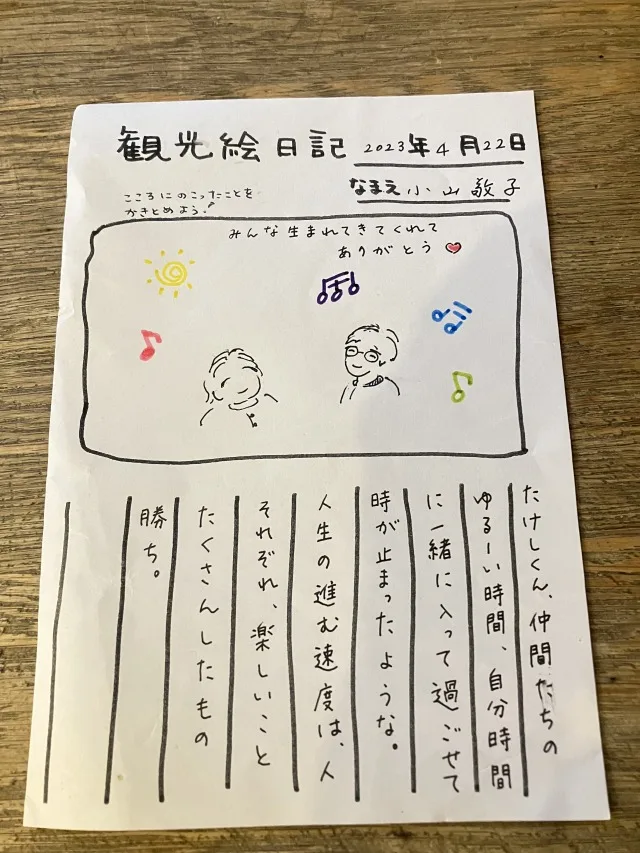 観光絵日記
2023年4月22日
なまえ 小山敬子
こころにのこったことを
かきとめよう!
みんな生まれてきてくれて
ありがとう
たけしくん、仲間たちの
ゆるーい時間、自分時間
に一緒に入って過ごせて
時が止まったような。
人生の進む速度は、人
それぞれ、楽しいこと
たくさんしたもの
勝ち。